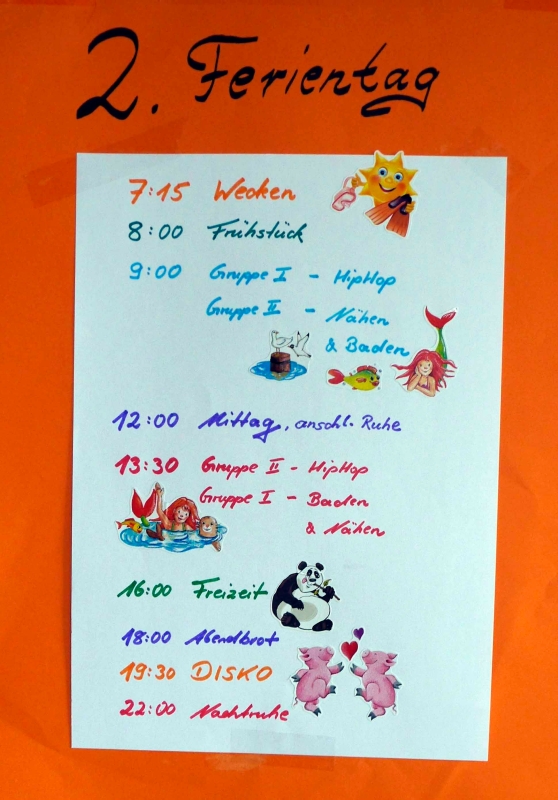 2. Ferientag
7:15 Wecken
8:00 Frühstück
9:00 Gruppe I - HipHop
Gruppe II - Nähen
& Baden
12:00 Mittag, anschl. Ruhe
13:30 Gruppe II - HipHop
Gruppe I - Baden
& Nähen
16:00 Freizeit
18:00 Abendbrot
19:30 DISKO
22:00 Nachtruhe